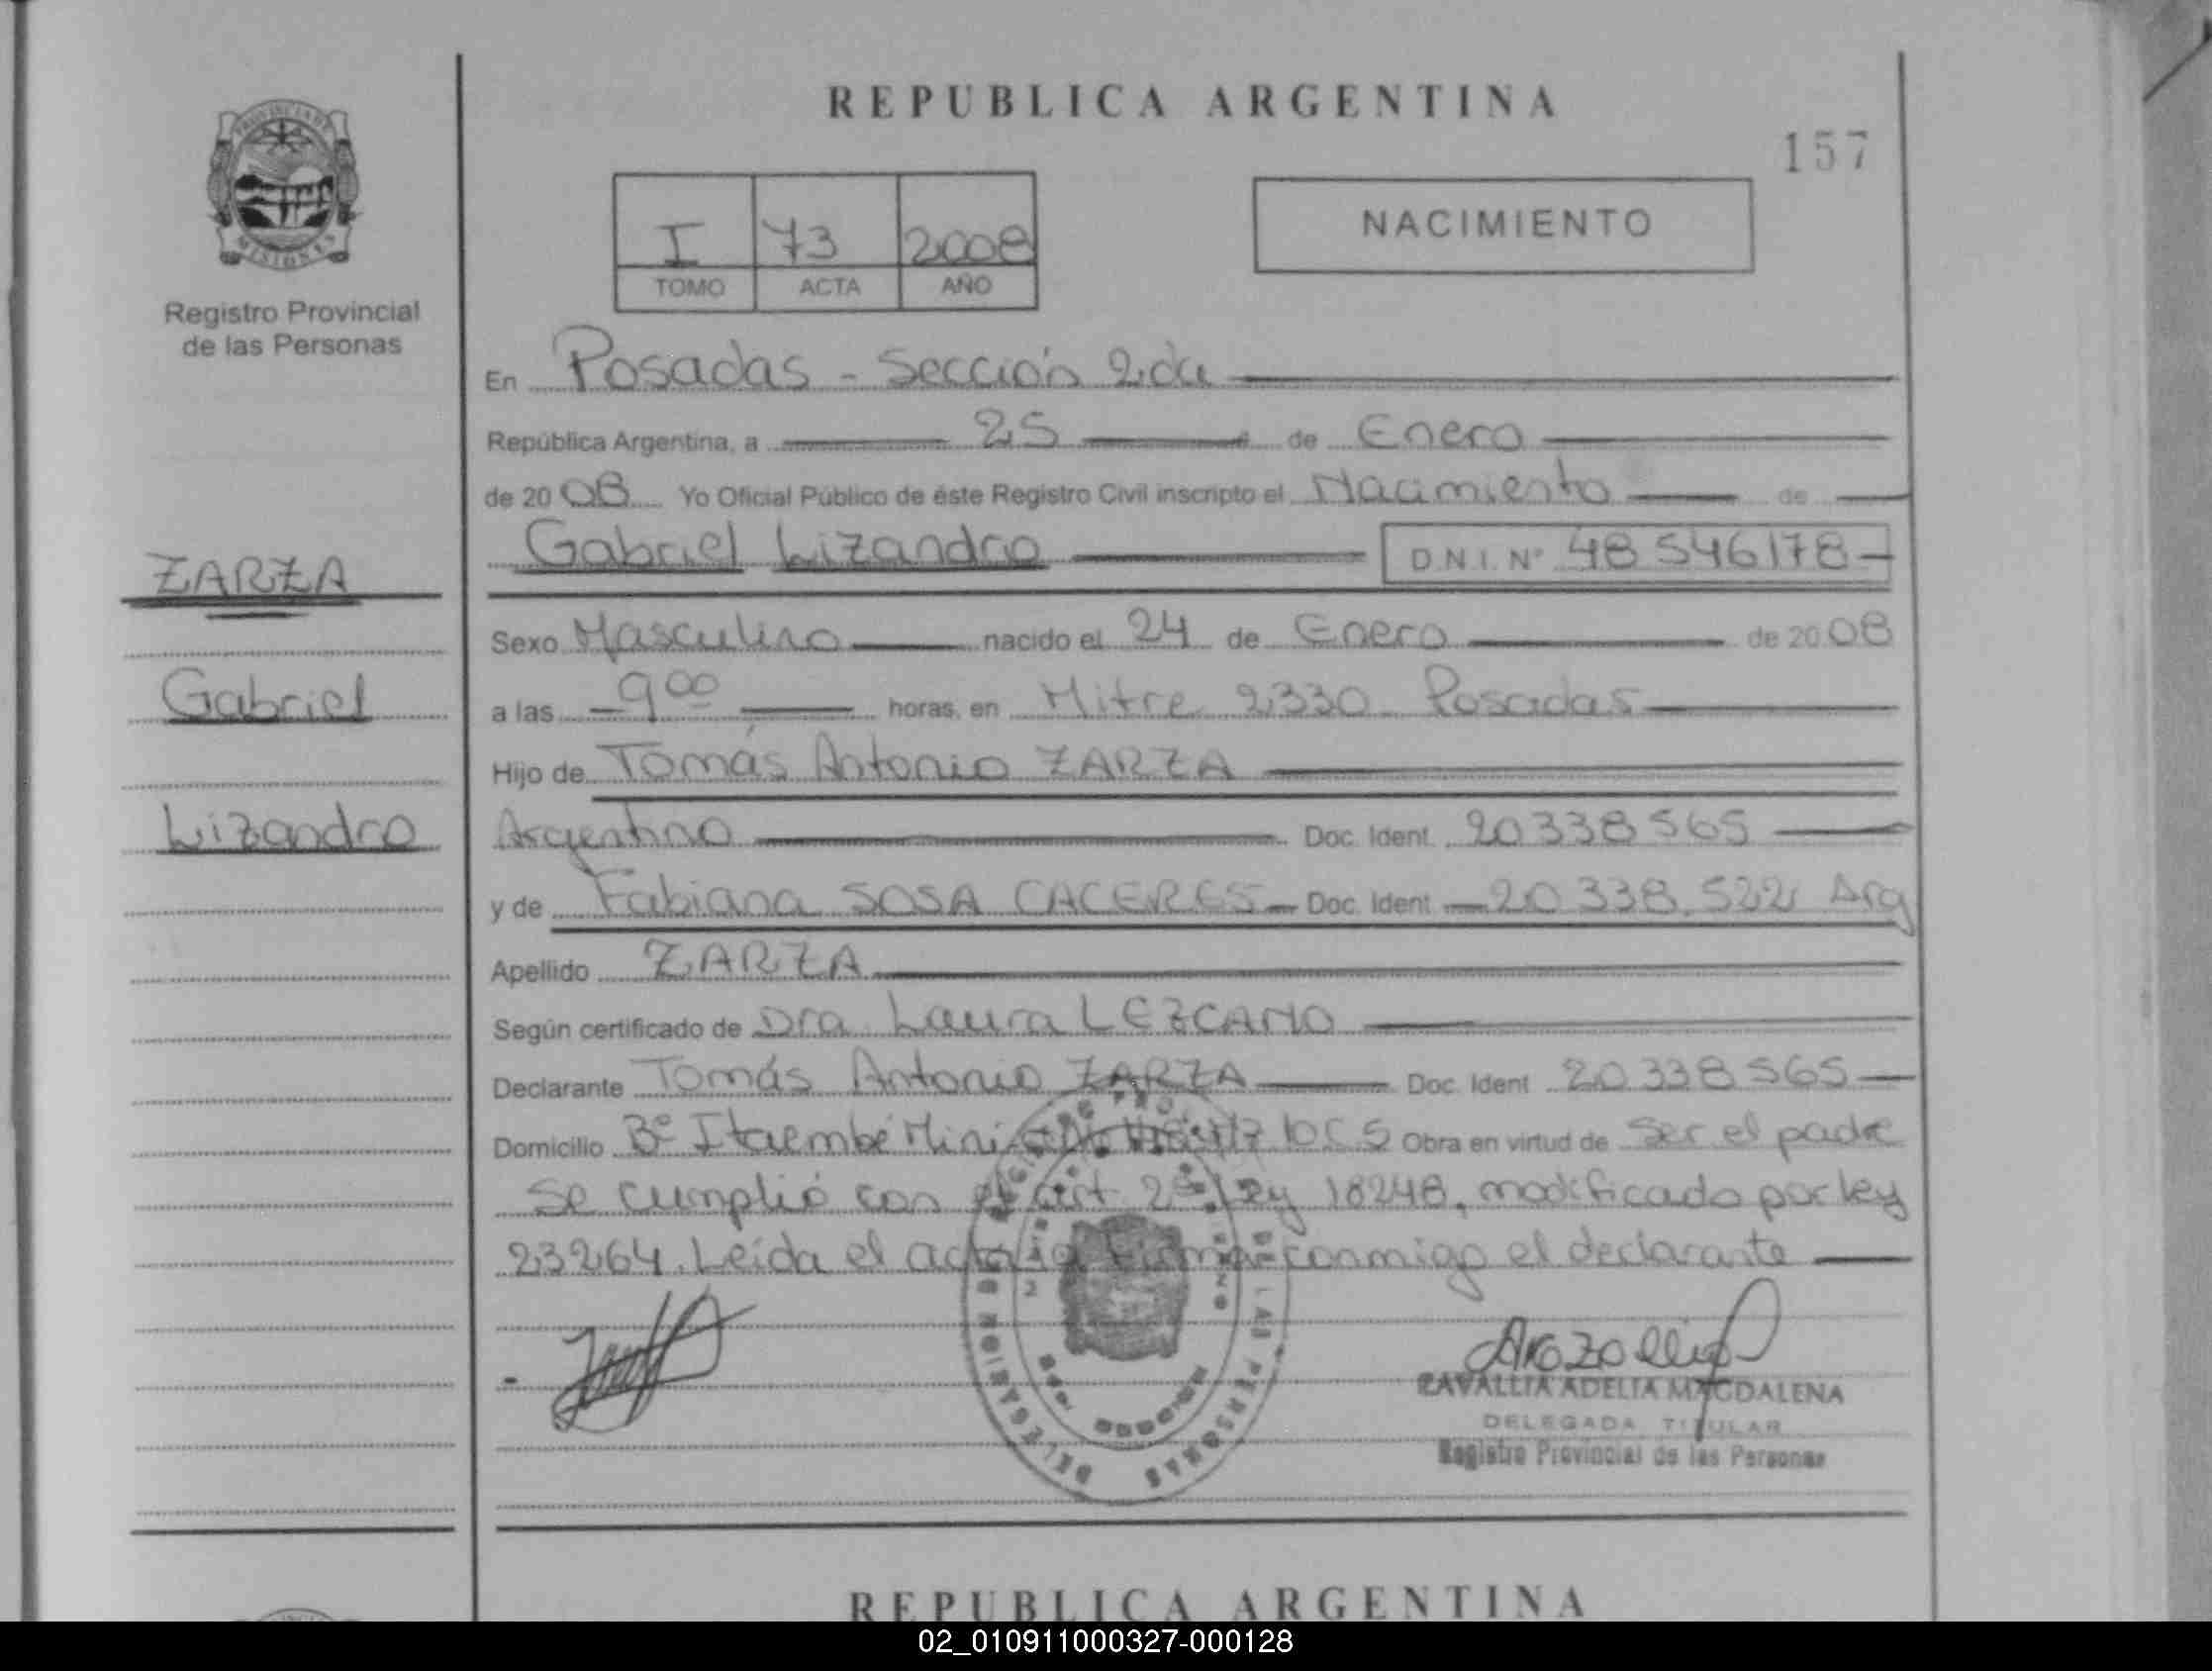 REPUBLICA ARGENTINA
157
PROVINCIA DE
MISIONES
Registro Provincial
de las Personas
I 73 2008
TOMO ACTA AÑO
NACIMIENTO
En Posadas - Sección 2da
República Argentina, a 25 de Enero
de 2008 Yo Oficial Público de éste Registro Civil inscripto el Nacimiento de
Gabriel Lizandro D.N.I. Nº 48 546178-
ZARZA
Gabriel
Lizandro
Sexo Masculino nacido el 24 de Enero de 2008
a las 9 00 horas, en Mitre 2330 Posadas
Hijo de Tomás Antonio ZARZA
Argentino Doc. Ident. 20338565
y de Fabiana SOSA CACERES - Doc. Ident. 20 338.522 Arg
Apellido ZARZA
Según certificado de Dra. Laura LEZCANO
Declarante Tomás Antonio ZARZA Doc. Ident. 20338565
Domicilio Bº Itaembé Mini Obra en virtud de Ser el padre
Se cumplió con el art 2º ley 18248, modificado por ley
23264. Leida el acta la firma conmigo el declarante
DELEGACION
DE LAS PERSONAS
ZAVALLIA ADELIA MAGDALENA
DELEGADA TITULAR
Registro Provincial de las Personas
REPUBLICA ARGENTINA
02_010911000327-000128